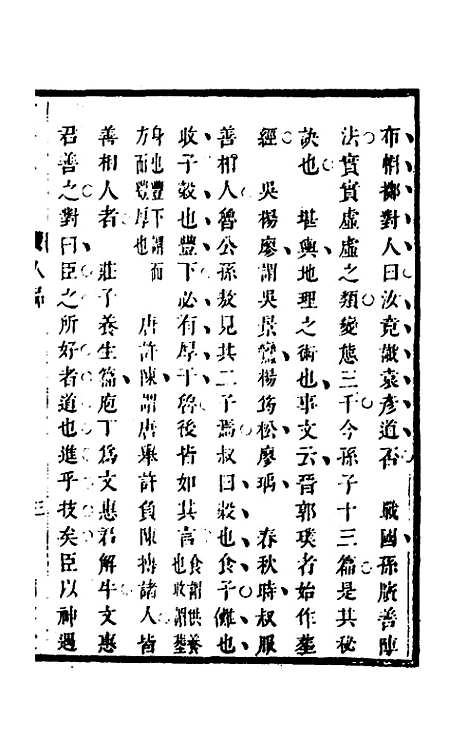 布帽擲對人曰汝竟識袁彥道否　戰國孫臏善陣
法實實虛虛之類變態三千今孫子十三篇是其秘
訣也　堪輿地理之術也事文云晉郭璞者始作塟
經　吳楊廖謂吳景鸞楊筠松廖瑀　春秋時叔服
善相人魯公孫敖見其二子焉叔曰穀也食子難也
收子穀也豐下必有厚于魯後皆如其言食謂供養
也收謂塟
身也豐下謂面
方而豐厚也　唐許陳謂唐舉許負陳摶諸人皆
善相人者　莊子養生篇庖丁爲文惠君解牛文惠
君善之對曰臣之所好者道也進乎技矣臣以神遇